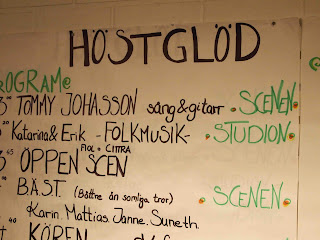 HÖSTGLÖD
ROGRAM@
3⁰⁰ TOMMY JOHASSON sång & gitarr • SCENEN •
²⁰ Katarina & Erik - FOLKMUSIK - • STUDION •
FIOL + CITTRA
⁴⁵ ÖPPEN SCEN
BÄST (Bättre än somliga tror) • SCENEN •
Karin, Mattias, Janne, Suneth
⁴⁰ KÖREN